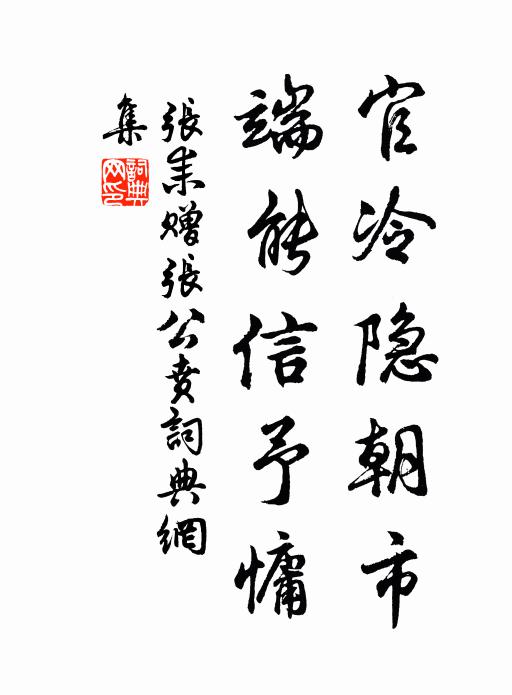 官冷隐朝市
端能信予慵
張耒赠張公贲詞典網
集
詞典網印